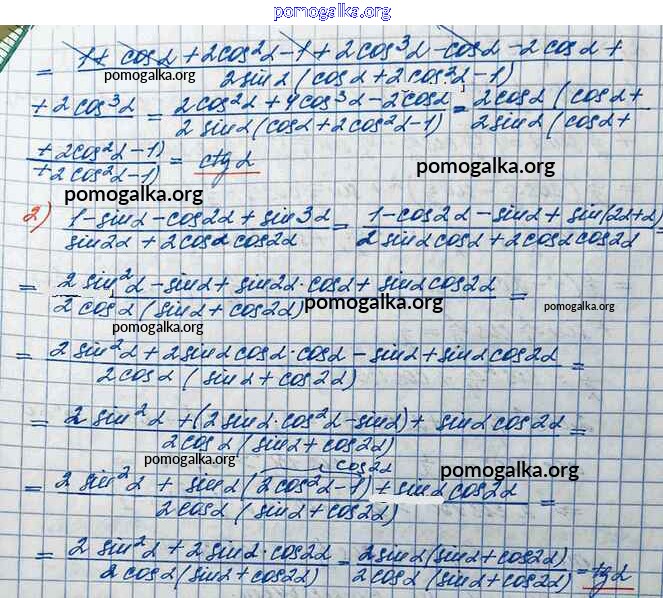 pomogalka.org
= (1 + cosα + 2cos²α - 1 + 2cos³α - cosα - 2cosα +) / (2sinα (cosα + 2cos²α - 1))
pomogalka.org
+ 2cos³α = (2cos²α + 4cos³α - 2cosα) / (2sinα (cosα + 2cos²α - 1)) = 2cosα (cosα + / 2sinα (cosα +
+ 2cos²α - 1) / + 2cos²α - 1) = ctgα
pomogalka.org
pomogalka.org
2) (1 - sinα - cos2α + sin3α) / (sin2α + 2cosα cos2α) = (1 - cos2α - sinα + sin(2α+α)) / (2sinα cosα + 2cosα cos2α) =
= (2sin²α - sinα + sin2α·cosα + sinα cos2α) / (2cosα (sinα + cos2α)) =
pomogalka.org
pomogalka.org
pomogalka.org
= (2sin²α + 2sinα cosα·cosα - sinα + sinα cos2α) / (2cosα (sinα + cos2α)) =
= (2sin²α + (2sinα·cos²α - sinα) + sinα cos2α) / (2cosα (sinα + cos2α)) =
pomogalka.org
cos2α
pomogalka.org
= (2sin²α + sinα (2cos²α - 1) + sinα cos2α) / (2cosα (sinα + cos2α)) =
= (2sin²α + 2sinα·cos2α) / (2cosα (sinα + cos2α)) = (2sinα (sinα + cos2α)) / (2cosα (sinα + cos2α)) = tgα